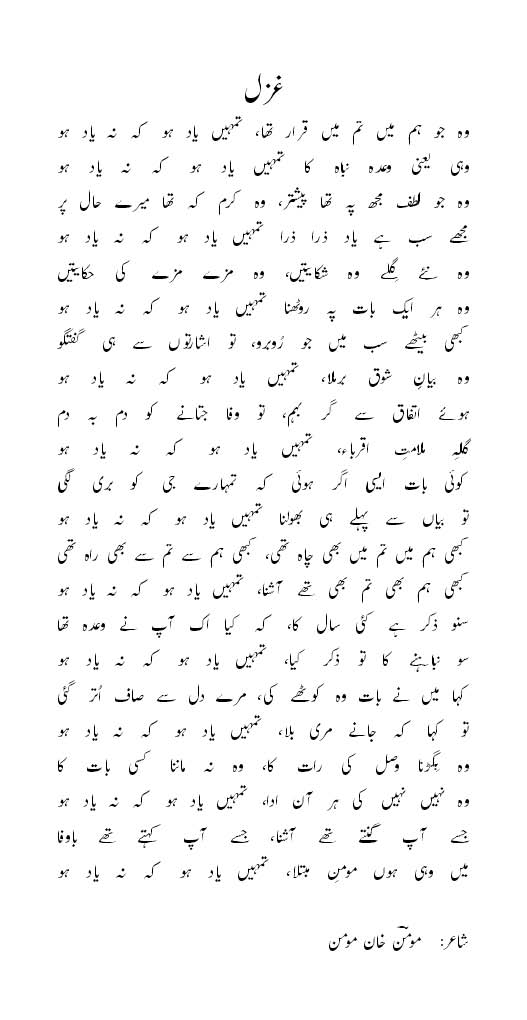 غزل
وہ جو ہم میں تم میں قرار تھا، تمہیں یاد ہو کہ نہ یاد ہو
وہی یعنی وعدہ نباہ کا تمہیں یاد ہو کہ نہ یاد ہو
وہ جو لطف مجھ پہ تھا پیشتر، وہ کرم کہ تھا میرے حال پر
مجھے سب ہے یاد ذرا ذرا تمہیں یاد ہو کہ نہ یاد ہو
وہ نئے گِلے وہ شکایتیں، وہ مزے مزے کی حکایتیں
وہ ہر ایک بات پہ روٹھنا تمہیں یاد ہو کہ نہ یاد ہو
کبھی بیٹھے سب میں جو رُوبرو، تو اشارتوں سے ہی گفتگو
وہ بیانِ شوق برملا، تمہیں یاد ہو کہ نہ یاد ہو
ہوئے اتفاق سے گر بہم، تو وفا جتانے کو دم بہ دم
گلہِ ملامتِ اقرباء، تمہیں یاد ہو کہ نہ یاد ہو
کوئی بات ایسی اگر ہوئی کہ تمہارے جی کو بری لگی
تو بیاں سے پہلے ہی بھولنا تمہیں یاد ہو کہ نہ یاد ہو
کبھی ہم میں تم میں بھی چاہ تھی، کبھی ہم سے تم سے بھی راہ تھی
کبھی ہم بھی تم بھی تھے آشنا، تمہیں یاد ہو کہ نہ یاد ہو
سنو ذکر ہے کئی سال کا، کہ کیا اک آپ نے وعدہ تھا
سو نباہنے کا تو ذکر کیا، تمہیں یاد ہو کہ نہ یاد ہو
کہا میں نے بات وہ کوٹھے کی، مرے دل سے صاف اُتر گئی
تو کہا کہ جانے مری بلا، تمہیں یاد ہو کہ نہ یاد ہو
وہ بِگڑنا وصل کی رات کا، وہ نہ ماننا کسی بات کا
وہ نہیں نہیں کی ہر آن ادا، تمہیں یاد ہو کہ نہ یاد ہو
جسے آپ گنتے تھے آشنا، جسے آپ کہتے تھے باوفا
میں وہی ہوں مومنِ مبتلا، تمہیں یاد ہو کہ نہ یاد ہو
شاعر: مومنؔ خان مومن